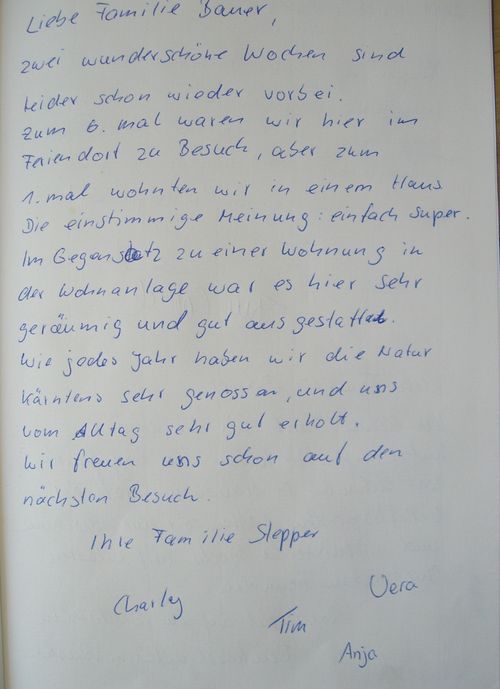 Liebe Familie Bauer,
zwei wunderschöne Wochen sind
leider schon wieder vorbei.
Zum 6. mal waren wir hier im
Feriendorf zu Besuch, aber zum
1. mal wohnten wir in einem Haus
Die einstimmige Meinung: einfach super.
Im Gegensatz zu einer Wohnung in
der Wohnanlage war es hier sehr
geräumig und gut ausgestattet.
Wie jedes Jahr haben wir die Natur
Kärntens sehr genossen, und uns
vom Alltag sehr gut erholt.
Wir freuen uns schon auf den
nächsten Besuch.
Ihre Familie Stepper
Charley
Vera
Tim
Anja